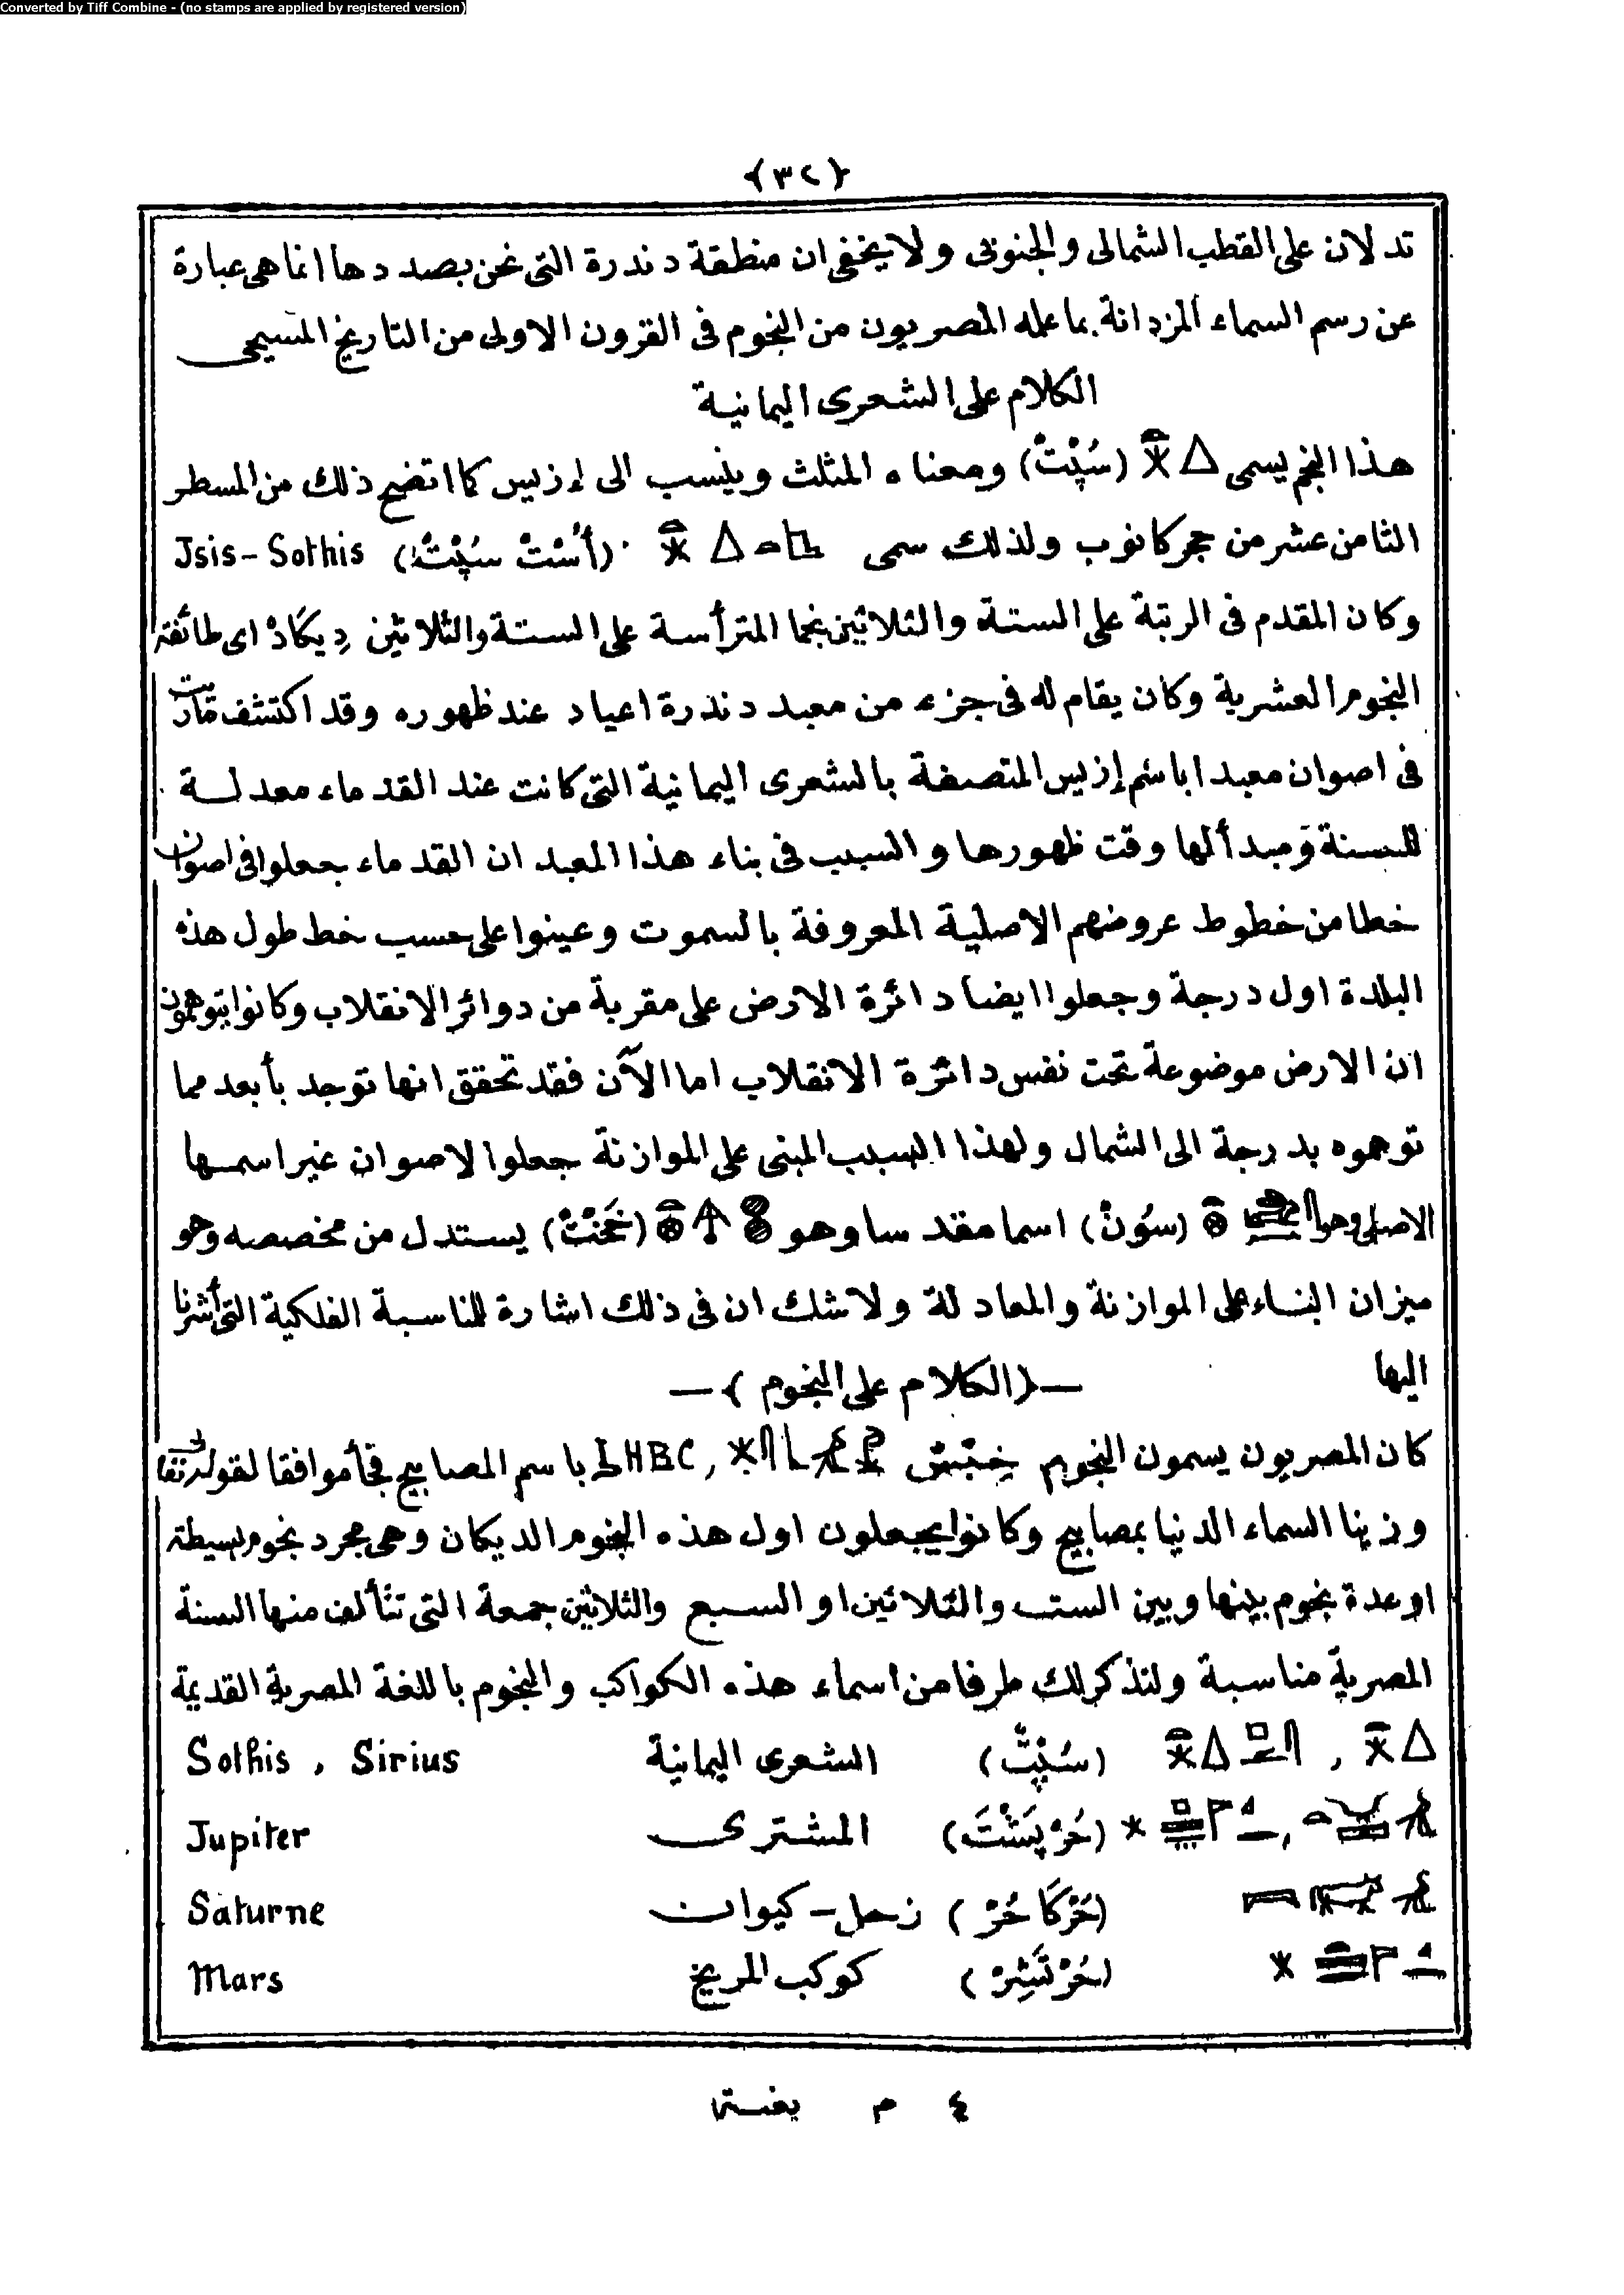 Converted by Tiff Combine - (no stamps are applied by registered version)
﴿٣٢﴾
تدلان على القطب الشمالى والجنوبى ولا يخفى ان منطقة دندرة التى نحن بصددها انما هى عبارة
عن رسم السماء المزدانة بما علمه المصريون من النجوم فى القرون الاولى من التاريخ المسيحى
الكلام على الشعرى اليمانية
هذا النجم يسمى (سُپْتْ) ومعناه المثلث وينسب الى إزيس كما اتضح ذلك من السطر
الثامن عشر من حجر كانوب ولذلك سمى (أسْتْ سُپْتْ) Jsis-Sothis
وكان المقدم فى الرتبة على الستة والثلاثين نجما المترأسة على الستة والثلاثين دِيكَادْ اى طائفة
النجوم العشرية وكان يقام له فى جزء من معبد دندرة اعياد عند ظهوره وقد اكتشف
فى اصوان معبدا باسم إزيس المتصفة بالشعرى اليمانية التى كانت عند القدماء معدلة
للسنة ومبدأ لها وقت ظهورها والسبب فى بناء هذا المعبد ان القدماء جعلوا فى اصوان
خطا من خطوط عروضهم الاصلية المعروفة بالسموت وعينوا على حسب خط طول هذه
البلدة اول درجة وجعلوا ايضا دائرة الارض على مقربة من دوائر الانقلاب وكانوا يتوهمون
ان الارض موضوعة تحت نفس دائرة الانقلاب اما الآن فقد تحقق انها توجد بأبعد مما
توهموه بدرجة الى الشمال ولهذا السبب المبنى على الموازنة جعلوا لاصوان غير اسمها
الاصلى وهو (سُونْ) اسما مقدسا وهو (خَخَنْتْ) يستدل من مخصصه وهو
ميزان البناء على الموازنة والمعادلة ولا شك ان فى ذلك اشارة للمناسبة الفلكية التى أشرنا
اليها
—﴿الكلام على النجوم﴾—
كان المصريون يسمون النجوم خِبْسْ , باسم المصابيح فجأ موافقا لقوله تعالى
وزينا السماء الدنيا بمصابيح وكانوا يجعلون اول هذه النجوم الديكان وهى مجرد نجوم بسيطة
او عدة نجوم بينها وبين الست والثلاثين او السبع والثلاثين جمعة التى تتألف منها السنة
المصرية مناسبة ولنذكر لك طرفا من اسماء هذه الكواكب والنجوم باللغة المصرية القديمة
(سُپْتْ) الشعرى اليمانية Sothis , Sirius
(حُرْ پَشْتَ) المشترى Jupiter
(حُرْكَا حُرْ) زحل - كيوان Saturne
(حُرْ تَشِرْ) كوكب المريخ Mars
٤ م